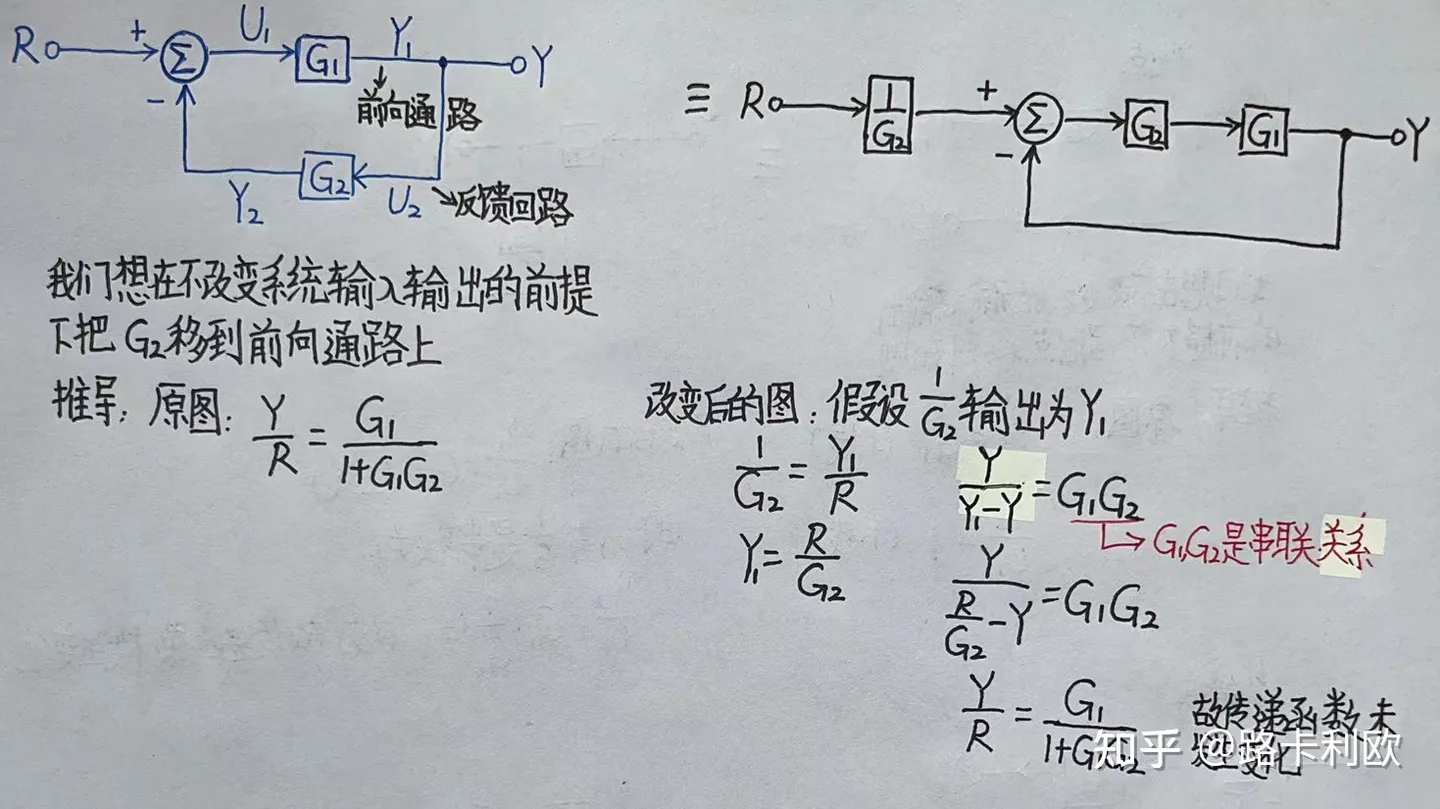 R + Σ U₁ G₁ Y₁ Y
前向通路
-
Y₂ G₂ U₂
反馈回路
≡ R 1/G₂ + Σ G₂ G₁ Y
-
我们想在不改变系统输入输出的前提
下把 G₂移到前向通路上
推导: 原图: Y/R = G₁/(1+G₁G₂)
改变后的图: 假设 1/G₂ 输出为 Y₁
1/G₂ = Y₁/R
Y₁ = R/G₂
Y/(Y₁-Y) = G₁G₂
G₁,G₂是串联关系
Y/(R/G₂ - Y) = G₁G₂
Y/R = G₁/(1+G₁G₂)
故传递函数未
变化
知乎 @路卡利欧